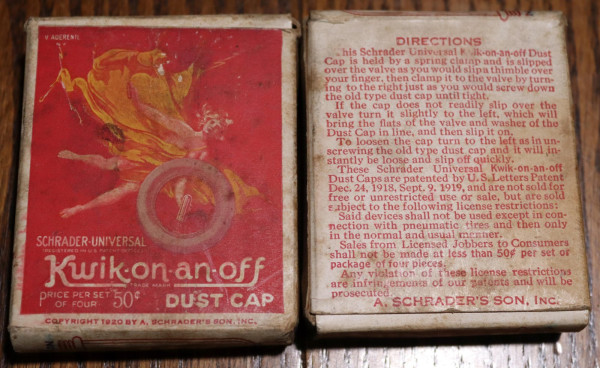 V. AUERENTE
SCHRADER-UNIVERSAL
Kwik-on-an-off
TRADE MARK
PRICE PER SET
OF FOUR 50¢ DUST CAP
COPYRIGHT 1920 BY A. SCHRADER'S SON, INC.
DIRECTIONS
his Schrader Universal Kwik-on-an-off Dust
Cap is held by a spring clamp and is slipped
over the valve as you would slip a thimble over
your finger, then clamp it to the valve by turn-
ing to the right just as you would screw down
the old type dust cap until tight.
If the cap does not readily slip over the
valve turn it slightly to the left, which will
bring the flats of the valve and washer of the
Dust Cap in line, and then slip it on.
To loosen the cap turn to the left as in un-
screwing the old type dust cap and it will in-
stantly be loose and slip off quickly.
These Schrader Universal Kwik-on-an-off
Dust Caps are patented by U.S. Letters Patent
Dec. 24, 1918. Sept. 9, 1919, and are not sold for
free or unrestricted use or sale, but are sold
subject to the following license restrictions:
Said devices shall not be used except in con-
nection with pneumatic tires and then only
in the normal and usual manner.
Sales from Licensed Jobbers to Consumers
shall not be made at less than 50¢ per set or
package of four pieces.
Any violation of these license restrictions
are infringements of our patents and will be
prosecuted.
A. SCHRADER'S SON, INC.